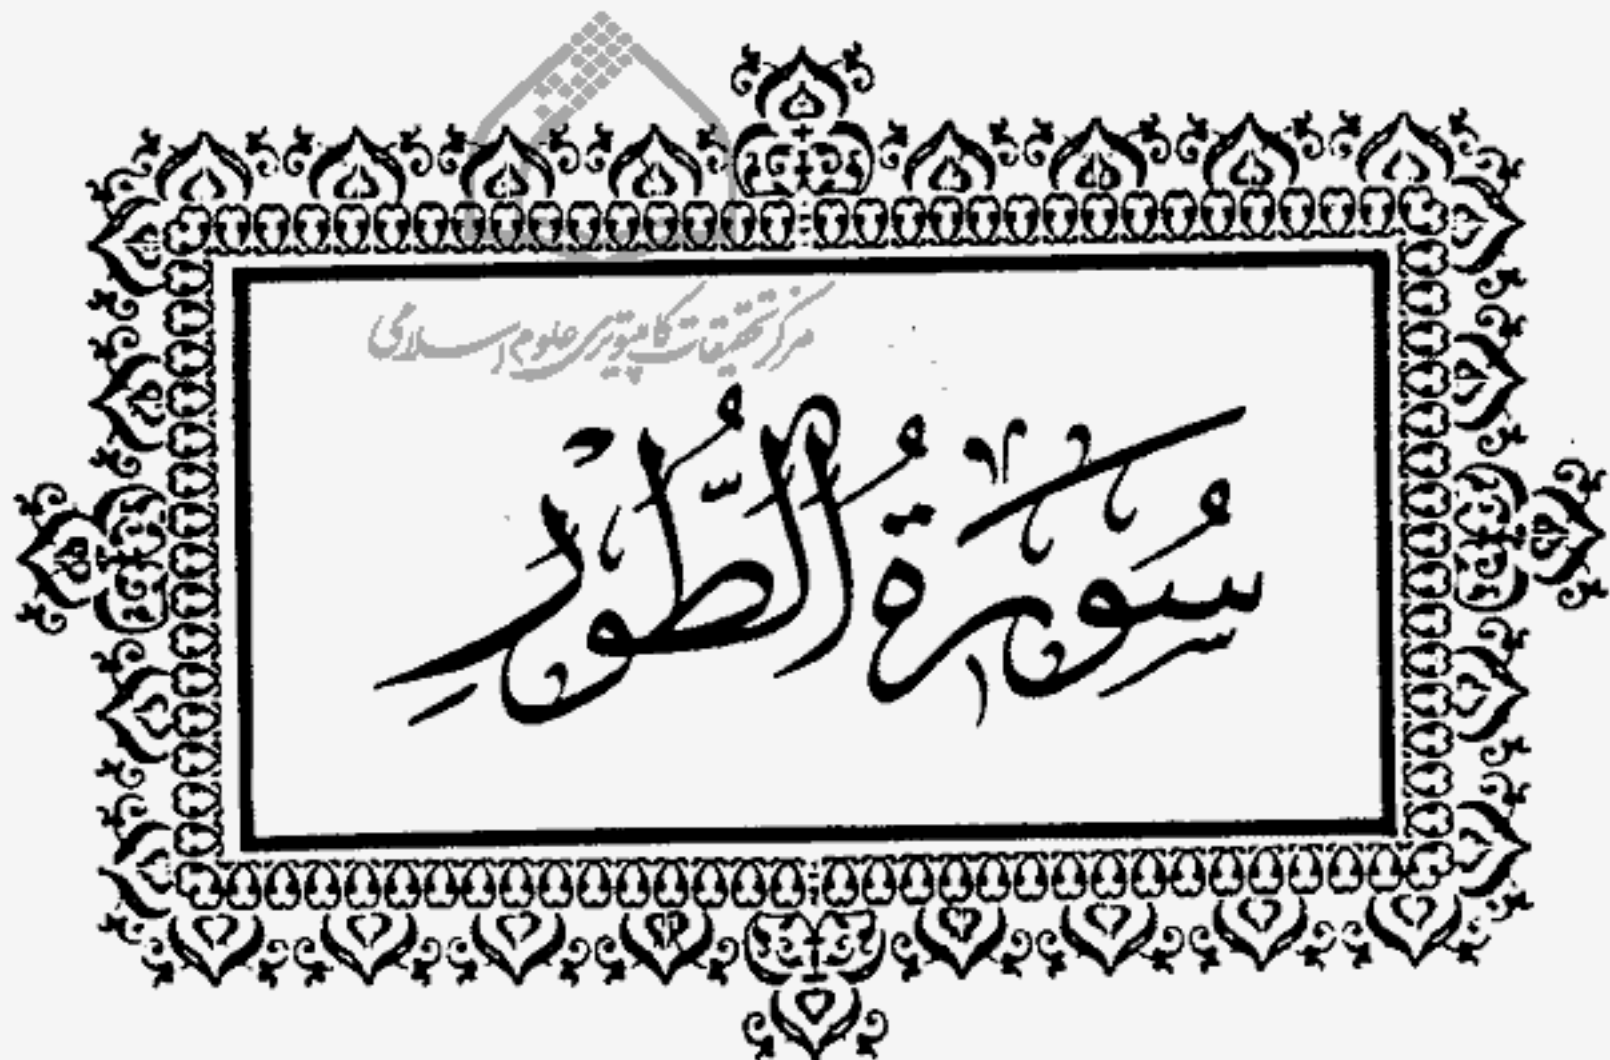 مرکز تحقیقات کامپیوتری علوم اسلامی
سُورَةُ الطُّورِ